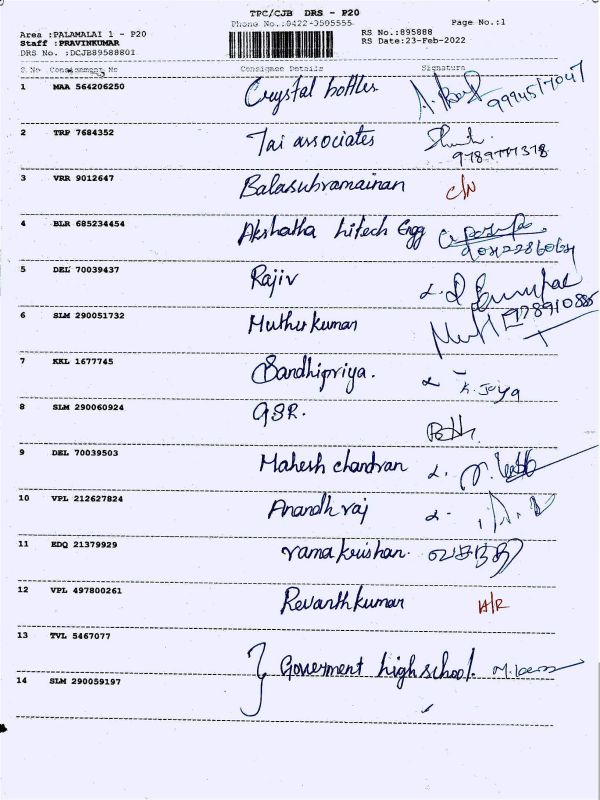 TPC/CJB DRS - P20
Phone No.:0422-3505555
Page No.:1
Area :PALAMALAI 1 - P20
Staff :PRAVINKUMAR
DRS No. :DCJB89588801
RS No.:895888
RS Date:23-Feb-2022
S.No Consignment No Consignee Details Signature
1 MAA 564206250 Crystal bottles 9994517047
2 TRP 7684352 Jai associates
3 VRR 9012647 Balasubramainan C/N
4 BLR 685234454 Akshatha hitech Engg
5 DEL 70039437 Rajiv
6 SLM 290051732 Muthu kumar
7 KKL 1677745 Sandhipriya. K. Jaya
8 SLM 290060924 GSR.
9 DEL 70039503 Mahesh chandran
10 VPL 212627824 Anandh raj
11 EDQ 21379929 rama krishan.
12 VPL 497800261 Revanth kumar
13 TVL 5467077
Goverment high school.
14 SLM 290059197